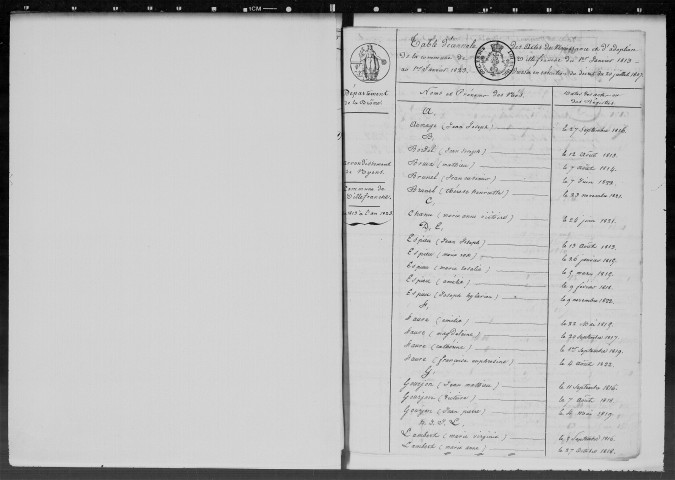 Table Décennale des Actes de Naissance et d'adoption
de la commune de Villefranche du 1er Janvier 1813
au 1er Janvier 1823. Dressée en exécution du décret du 20 juillet 1807.
Département
de la Drôme
Arrondissement
de Nyons.
Commune de
Villefranche.
1813 à l'an 1823.
Noms et Prénoms des Nés. Dates des actes sur
des Registres
A.
(Jean Joseph) le 27 Septembre 1816.
B.
Bordel (Jean Joseph) le 12 Août 1813.
(Mathieu) le 7 Août 1814.
Brunel le 7 Juin 1820.
Brunel (Henriette) le 27 novembre 1821.
C.
(marie anne victoire) le 22 juin 1821.
D. E.
Espieu (Jean Joseph) le 13 Août 1813.
Espieu (marie rose) le 26 janvier 1815.
Espieu (marie rosalie) le 5 mars 1819.
Espieu (amélie) le 9 février 1818.
Espieu (Joseph) le 9 novembre 1822.
F.
Faure (emilie) le 22 Mai 1815.
Faure (magdeleine) le 20 septembre 1817.
Faure (catherine) le 1er Septembre 1819.
Faure (françoise euphrosine) le 4 Août 1822.
G.
Goujon (Jean mathieu) le 11 Septembre 1816.
Goujon (Victoire) le 7 Août 1818.
Goujon (Jean pierre) le 4 Mars 1819.
H. I. J. L.
Lambert (marie virginie) le 8 Septembre 1816.
Lambert (marie anne) le 27 Octobre 1818.